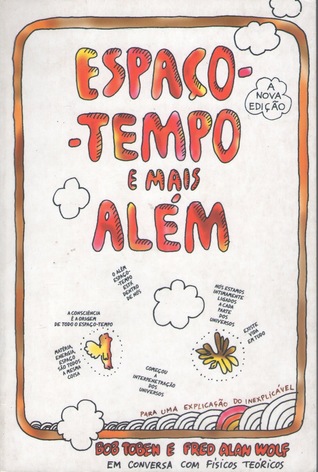 ESPAÇO-
-TEMPO
E MAIS
ALÉM
A
NOVA
EDIÇÃO
O ALÉM
ESPAÇO-
TEMPO
ESTÁ
DENTRO
DE NÓS
NÓS ESTAMOS
INTIMAMENTE
LIGADOS
A CADA
PARTE
DOS
UNIVERSOS
A CONSCIÊNCIA
É A ORIGEM
DE TODO O ESPAÇO-TEMPO
MATÉRIA,
ENERGIA,
ESPAÇO
SÃO TODOS
A MESMA
COISA
EXISTE
VIDA
EM TUDO
COMEÇOU
A
INTERPENETRAÇÃO
DOS
UNIVERSOS
PARA UMA EXPLICAÇÃO DO INEXPLICÁVEL
BOB TOBEN E FRED ALAN WOLF
EM CONVERSA COM FÍSICOS TEÓRICOS